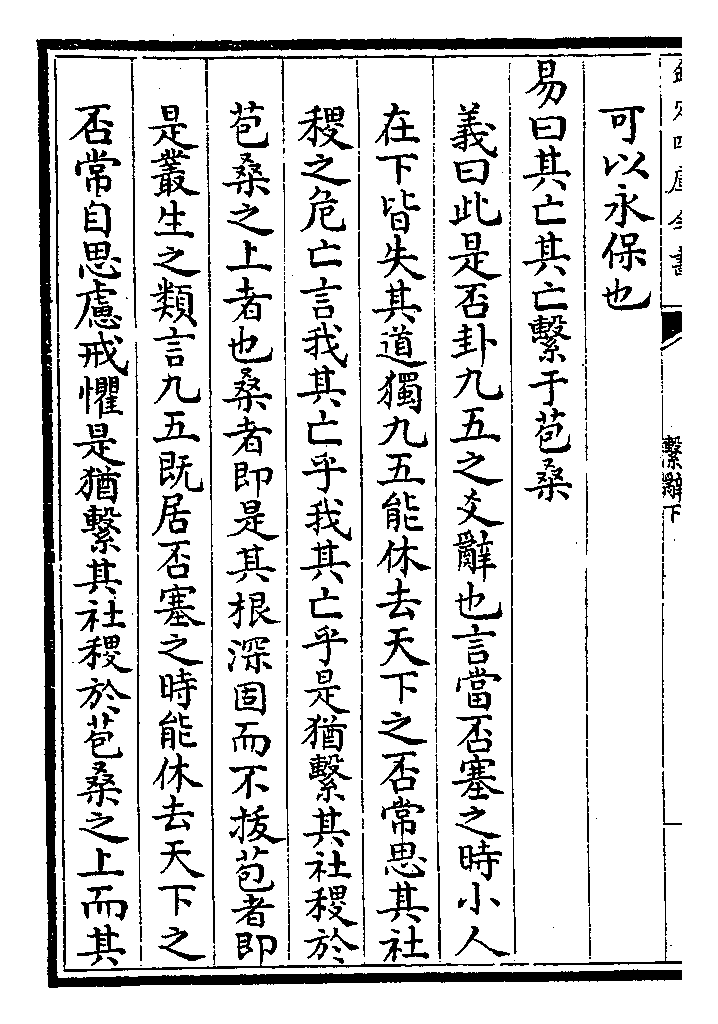 欽定四庫全書
繫辭下
可以永保也
易曰其亡其亡繫于苞桑
義曰此是否卦九五之爻辭也言當否塞之時小人
在下皆失其道獨九五能休去天下之否常思其社
稷之危亡言我其亡乎我其亡乎是猶繫其社稷於
苞桑之上者也桑者即是其根深固而不拔苞者即
是叢生之類言九五既居否塞之時能休去天下之
否常自思慮戒懼是猶繫其社稷於苞桑之上而其